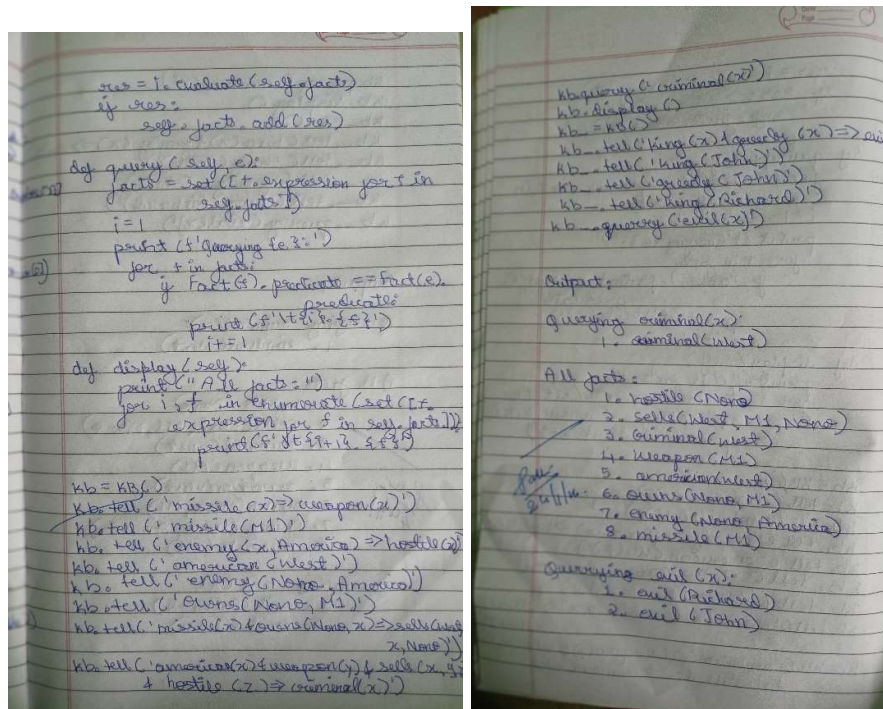 res = i.evaluate(self.facts)
if res:
self.facts.add(res)
def query(self, e):
facts = set([f.expression for f in
self.facts])
i=1
print(f'Querying {e}:')
for f in facts:
if Fact(f).predicate == Fact(e).
predicate:
print(f'\t{i}.{f}')
i+=1
def display(self):
print("All facts:")
for i, f in enumerate(set([f.
expression for f in self.facts])):
print(f'\t{i+1}.{f}')
kb = KB()
kb.tell('missile(x)=>weapon(x)')
kb.tell('missile(M1)')
kb.tell('enemy(x,America)=>hostile(x)')
kb.tell('american(West)')
kb.tell('enemy(Nono,America)')
kb.tell('owns(Nono,M1)')
kb.tell('missile(x)&owns(Nono,x)=>sells(West,
x,Nono)')
kb.tell('american(x)&weapon(y)&sells(x,y,z)
& hostile(z)=>criminal(x)')
kb.query('criminal(x)')
kb.display()
kb_ = KB()
kb_.tell('King(x)&greedy(x)=>evil
kb_.tell('King(John)')
kb_.tell('greedy(John)')
kb_.tell('King(Richard)')
kb_.querry('evil(x)')
Output:
Querying criminal(x):
1. criminal(West)
All facts:
1. hostile(Nono)
2. sells(West, M1, Nono)
3. criminal(West)
4. weapon(M1)
5. american(West)
6. owns(Nono, M1)
7. enemy(Nono, America)
8. missile(M1)
Querying evil(x):
1. evil(Richard)
2. evil(John)